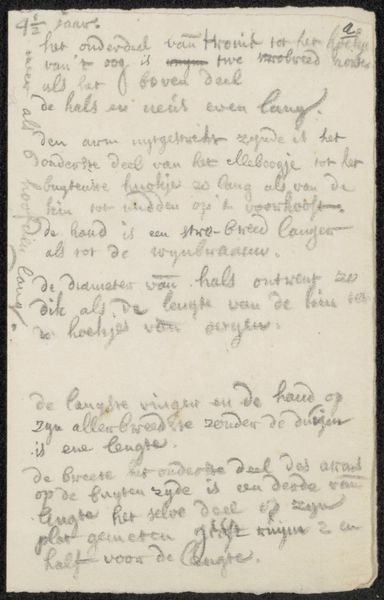 4½ jaar
2
het onderdeel van't tronie tot het hoekje
van't oog is twe strobreed korter
als het boven deel
de hals en neus even lang.
den arm uytgestrekt zynde is het
onderste deel van het elleboogje tot het
buytenste zo lang als van de
kin tot midden op't voorhooft.
de hand is een stro-breed langer
als tot de wynbraauw.
de diameter van hals ontrent zo
dik als de lengte van de kin tot
hoekjes van oogen.
meer als hooft lang.
de langste vinger en de hand op
zyn allerbreedste zonder de duijm
is ene lengte.
de breete het onderste deel des arms
op de buyten zyde is een derde van
lengte het selve deel op zyn
plat gemeten ruijm 2 en
half voor de lengte.